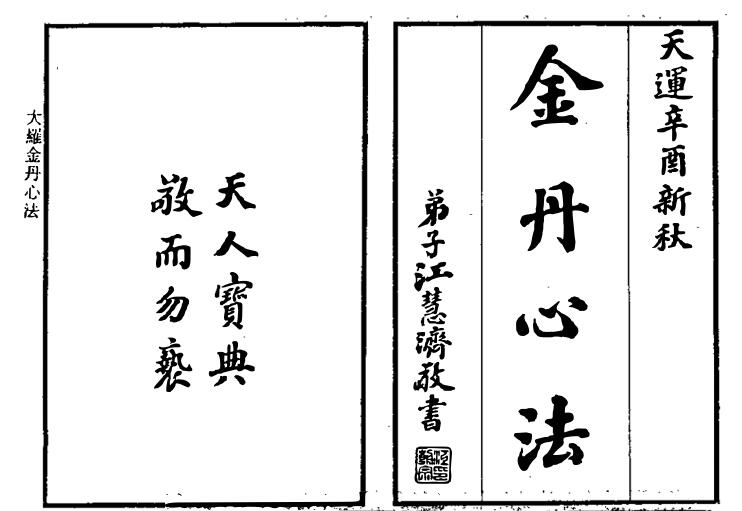 天運辛酉新秋
金丹心法
弟子江慧濟敬書
天人寶典
敬而勿褻
大羅金丹心法